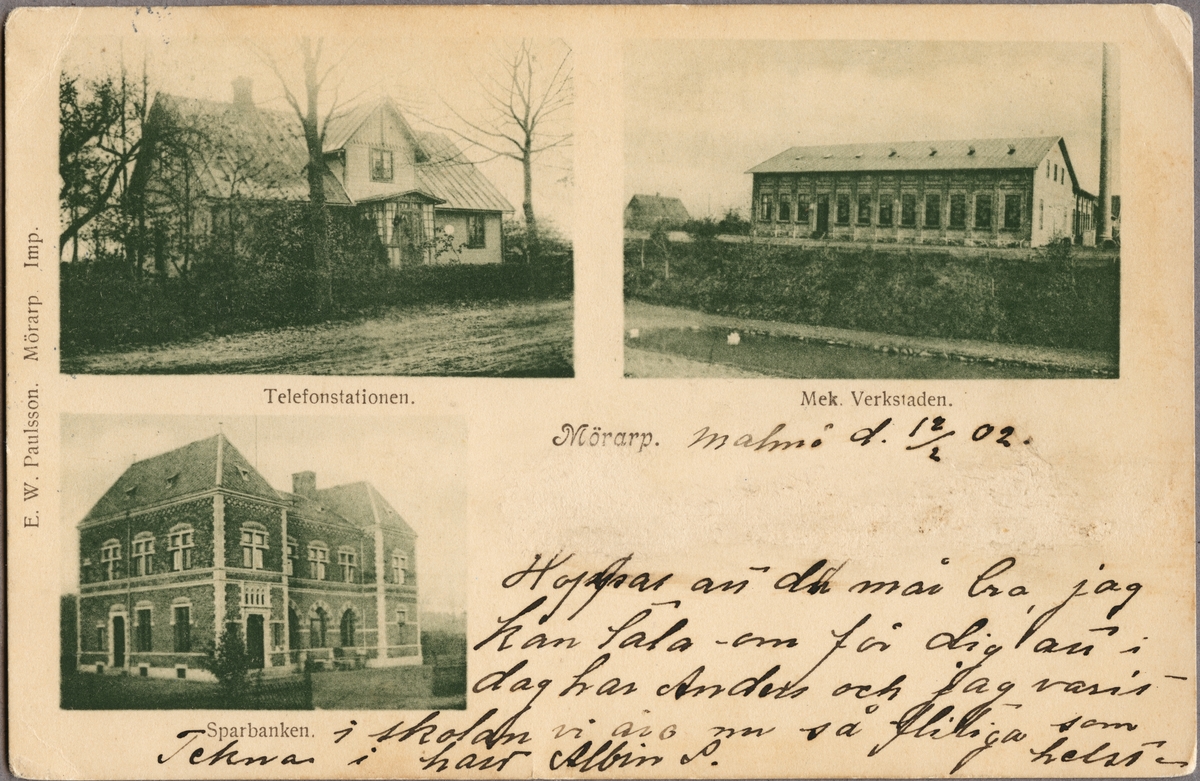 E. W. Paulsson. Mörarp Imp.
Telefonstationen.
Mek. Verkstaden.
Mörarp. Malmö d. 12/2 02.
Hoppas att du mår bra, jag
kan tala om för dig att i
dag har Anders och jag varit
i skolan vi äro nu så flitiga som
helst
Sparbanken.
Teknar i hast Albin P.